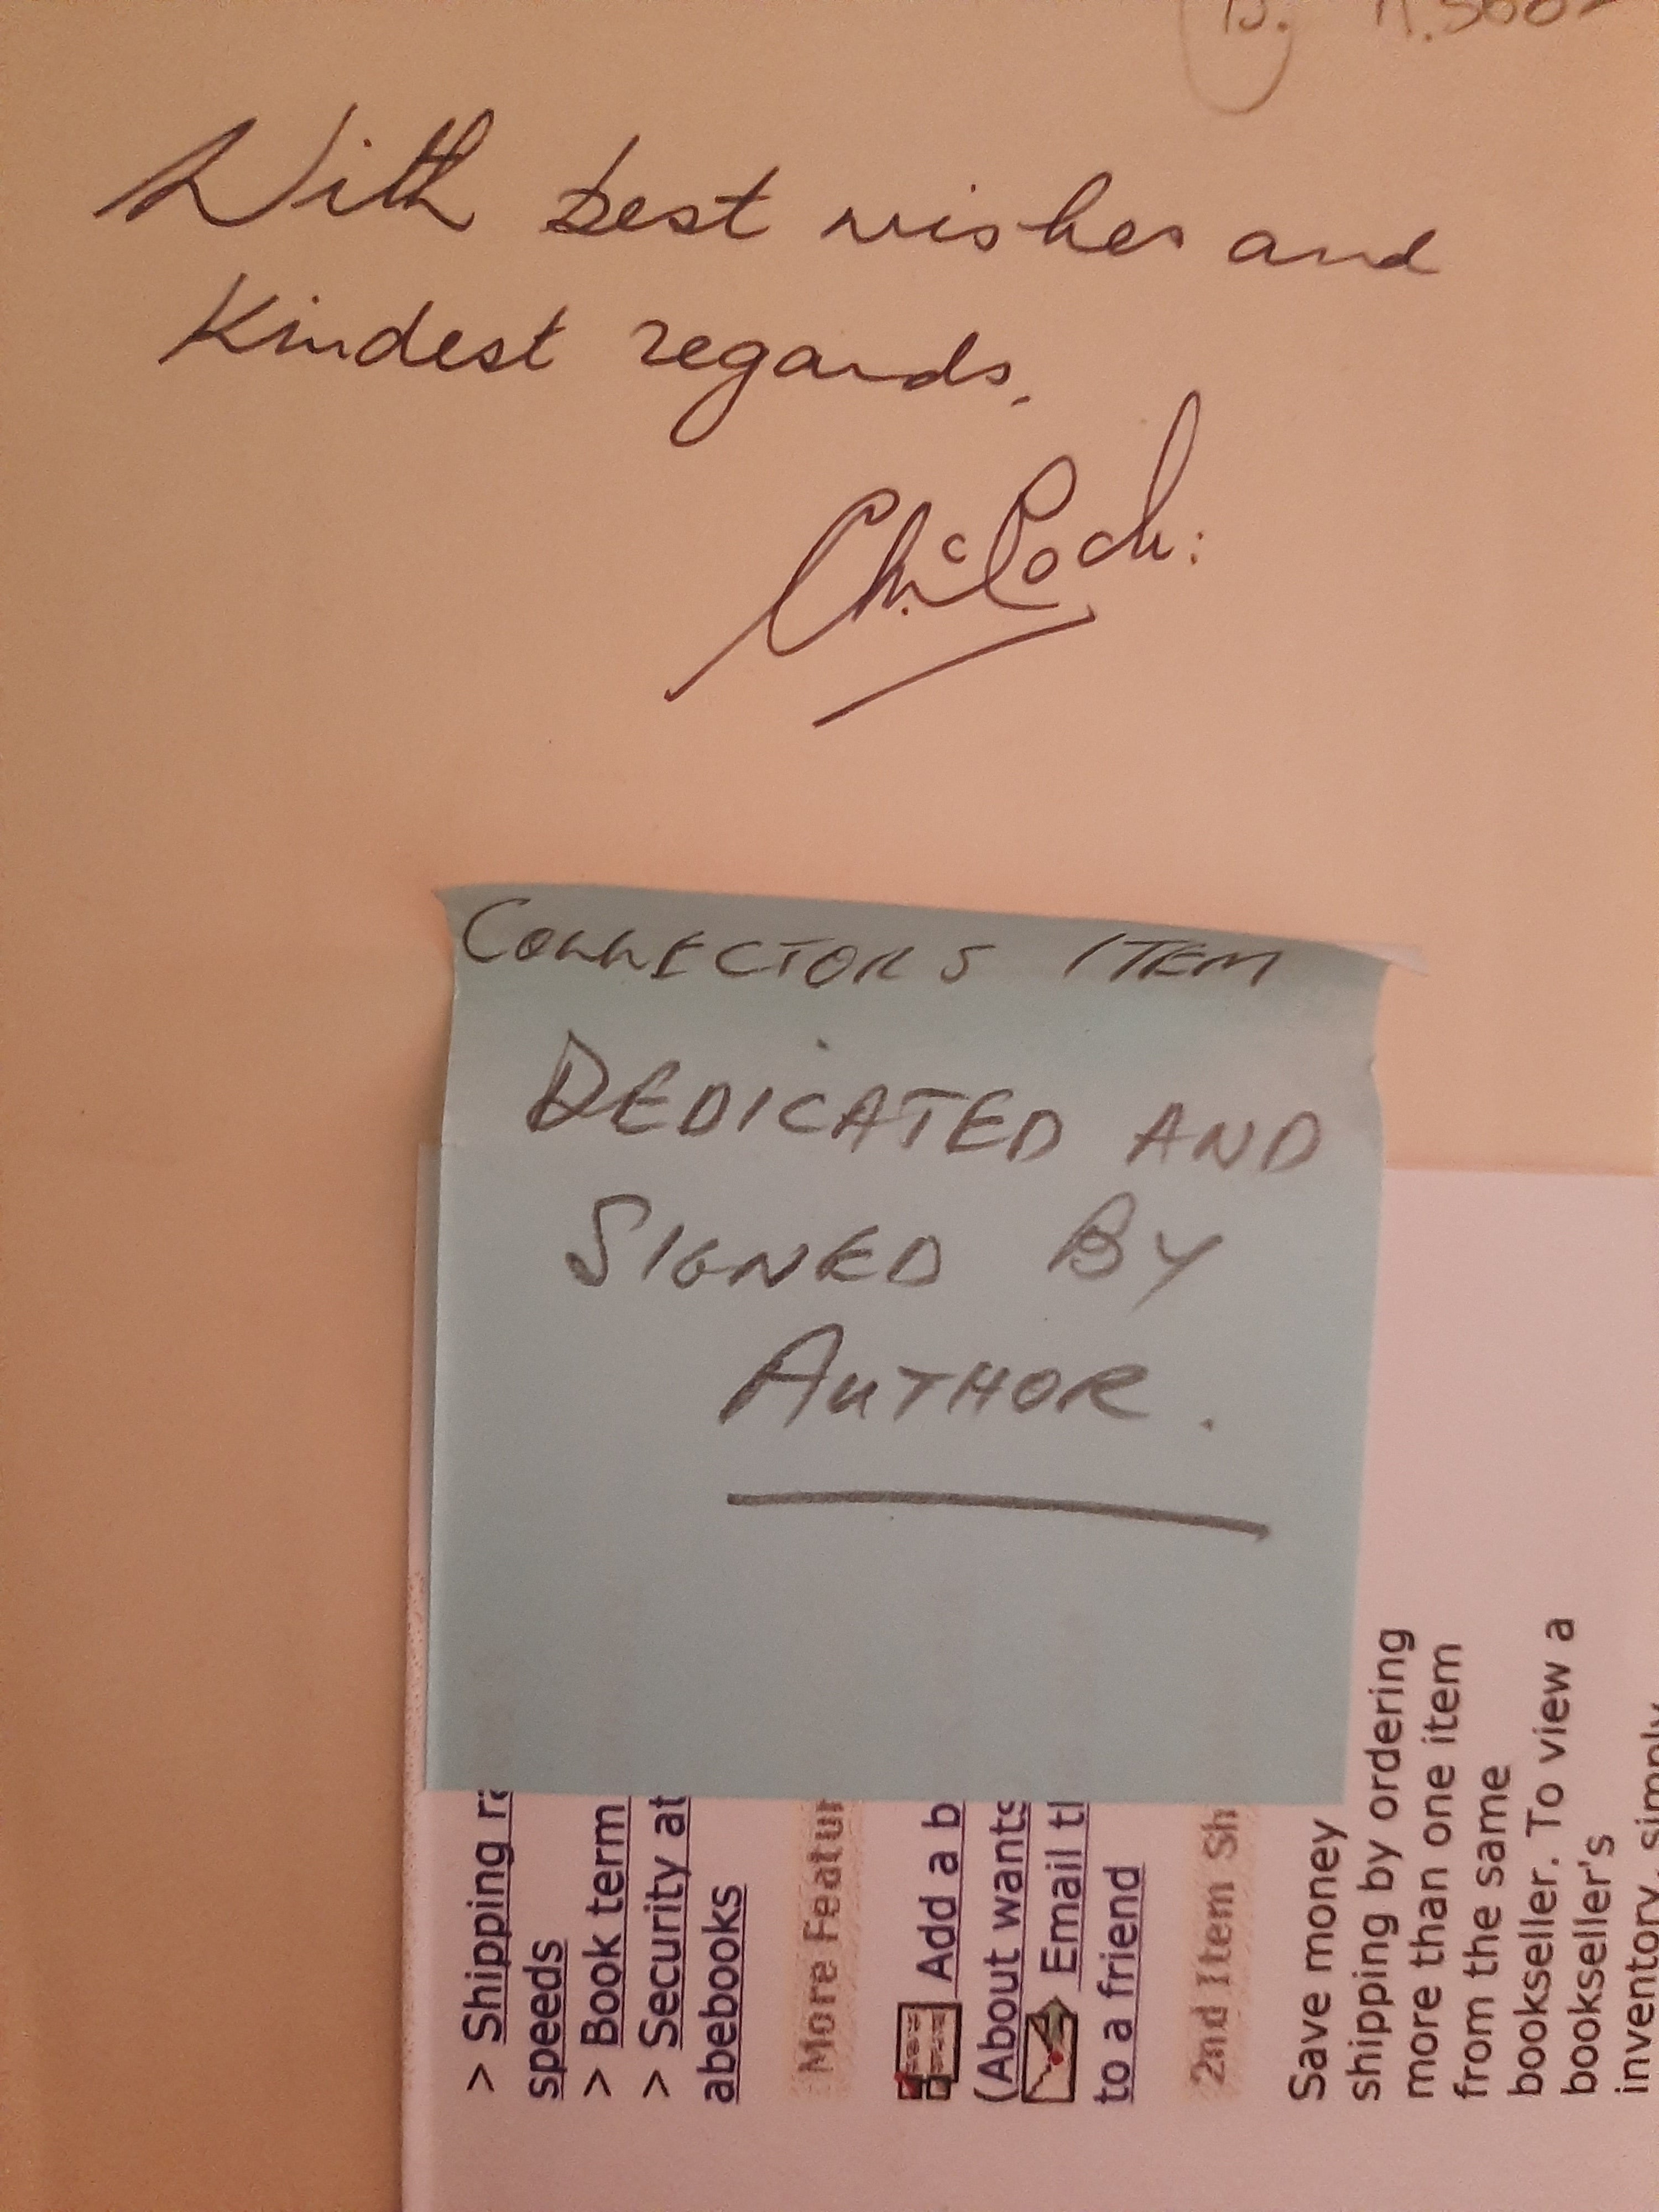 With best wishes and
Kindest regards.
COLLECTORS ITEM
DEDICATED AND
SIGNED BY
AUTHOR.
> Shipping ra
speeds
> Book term
> Security at
abebooks
More Featur
Add a b
(About wants
Email th
to a friend
2nd Item Sh
Save money
shipping by ordering
more than one item
from the same
bookseller. To view a
bookseller's
inventory, simply